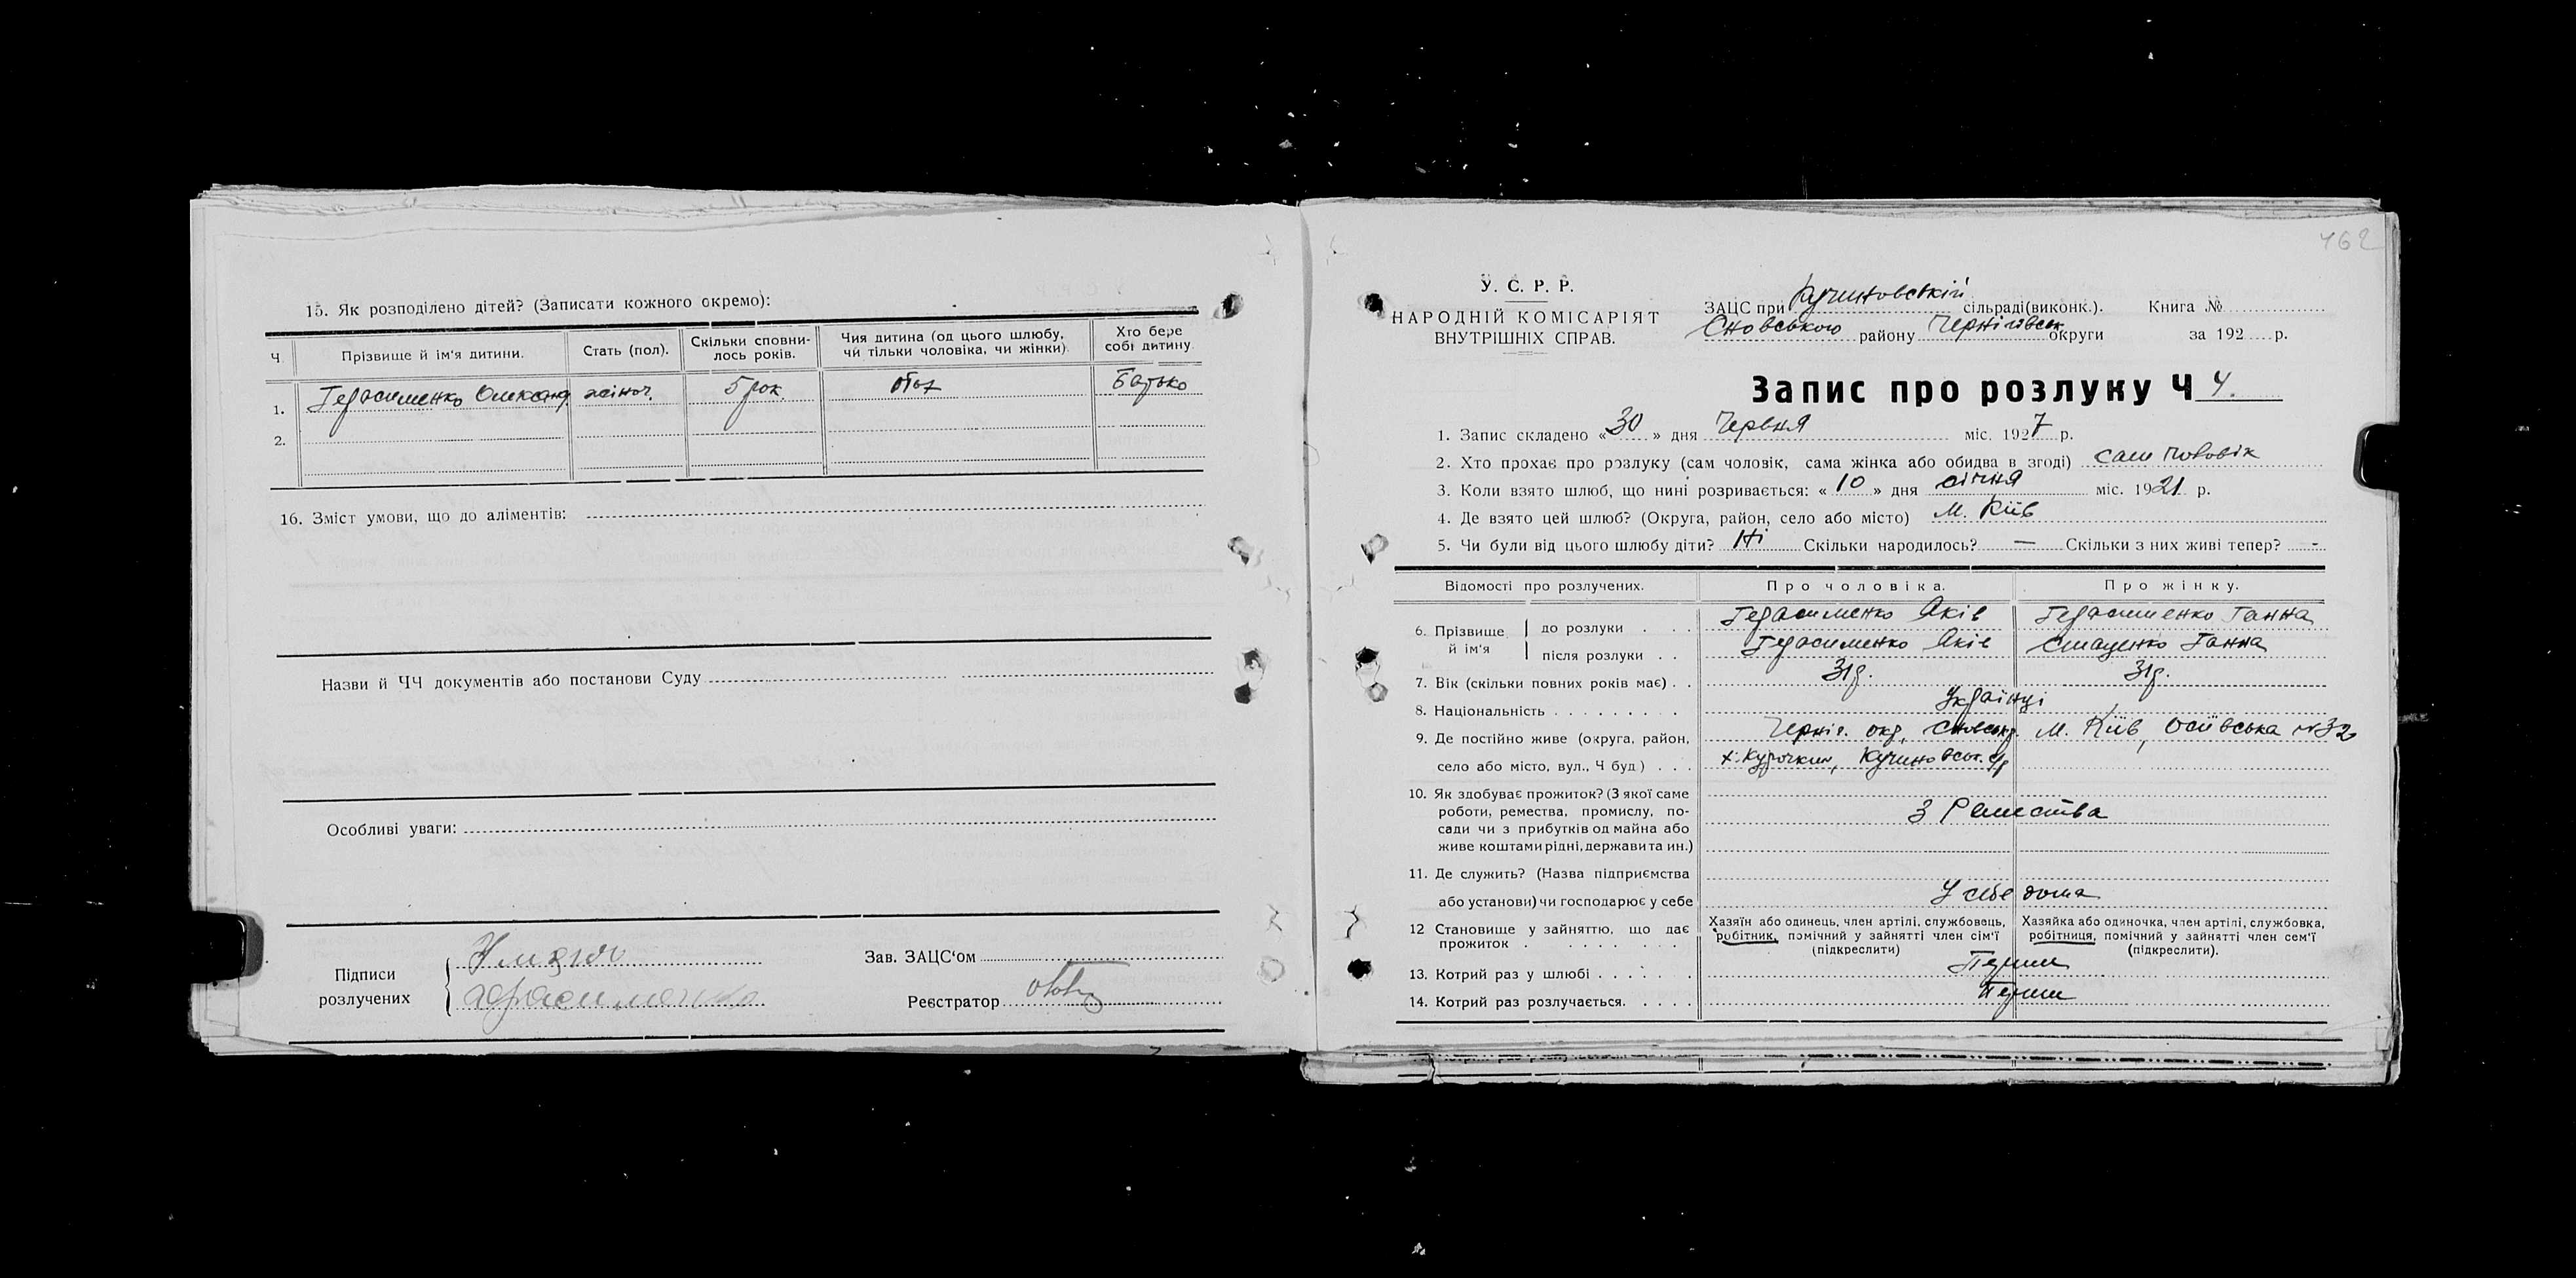 15. Як розподілено дітей? (Записати кожного окремо):
Ч. Прізвище й ім'я дитини. Стать (пол). Скільки сповнилось років. Чия дитина (од цього шлюбу, чи тільки чоловіка, чи жінки) Хто бере собі дитину
1. Герасименко Олександ. жіноч. 5 рок. Батько
2.
16. Зміст умови, що до аліментів:
Назви й ЧЧ документів або постанови Суду
Особливі уваги:
Підписи розлучених
Зав. ЗАЦС'ом
Реєстратор
462
У. С. Р. Р.
НАРОДНІЙ КОМІСАРІЯТ
ВНУТРІШНІХ СПРАВ.
ЗАЦС при Кучиновській сільраді (виконк.). Книга №
Сновського району Чернігівськ. округи за 192 р.
Запис про розлуку Ч 4.
1. Запис складено « 30 » дня Червня міс. 1927 р.
2. Хто прохає про розлуку (сам чоловік, сама жінка або обидва в згоді) сам чоловік
3. Коли взято шлюб, що нині розривається: « 10 » дня січня міс. 1921 р.
4. Де взято цей шлюб? (Округа, район, село або місто) М. Київ
5. Чи були від цього шлюбу діти? Ні Скільки народилось? — Скільки з них живі тепер? -
Відомості про розлучених. Про чоловіка. Про жінку.
6. Прізвище й ім'я
до розлуки Герасименко Яків Герасименко Ганна
після розлуки Герасименко Яків Стаценко Ганна
7. Вік (скільки повних років має) 31 р. 31 р.
8. Національність Українці
9. Де постійно живе (округа, район, Черніг. окр., Сновськ р. М. Київ, Осіївська № 32
село або місто, вул., Ч буд.) х. Курочкин, Кучиновськ. с/р
10. Як здобуває прожиток? (З якої саме
роботи, ремества, промислу, по- З Ремества
сади чи з прибутків од майна або
живе коштами рідні, держави та ин.)
11. Де служить? (Назва підприємства
або установи) чи господарює у себе У себе дома
12 Становище у зайняттю, що дає прожиток
Хазяїн або одинець, член артілі, службовець, робітник, помічний у зайнятті член сім'ї (підкреслити)
Хазяйка або одиночка, член артілі, службовка, робітниця, помічний у зайнятті член сем'ї (підкреслити).
13. Котрий раз у шлюбі Перши
14. Котрий раз розлучається. Перши